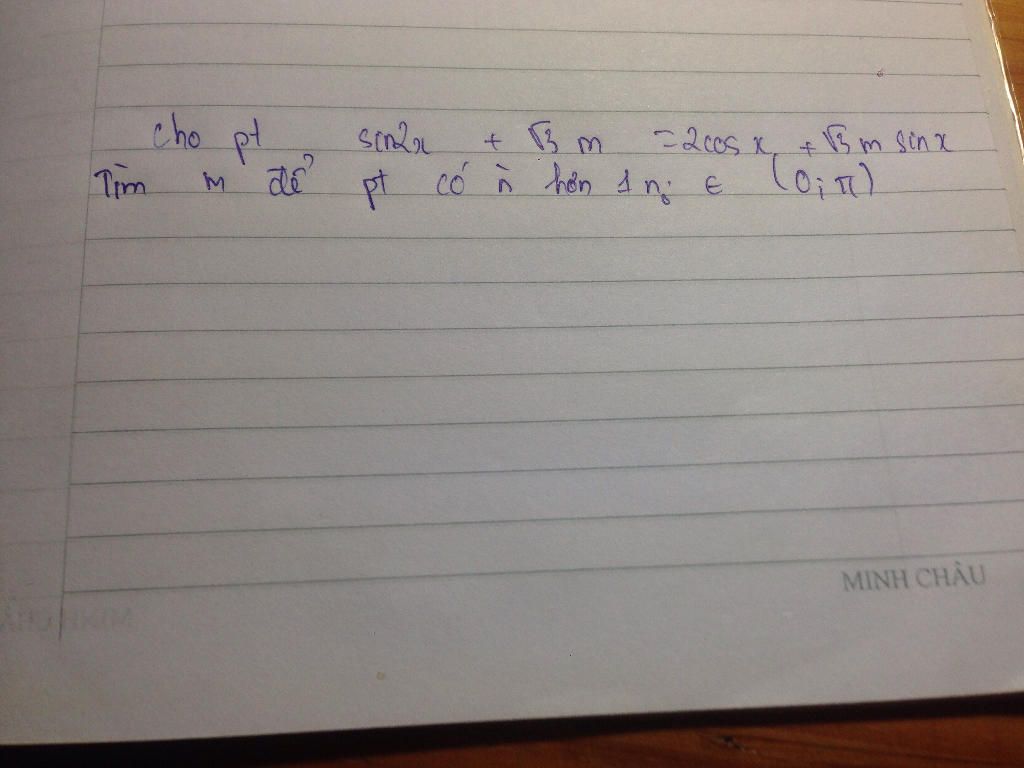 Cho pt sin2x + √3 m = 2cosx + √3 m sinx
Tìm m để pt có ǹ hơn 1 no ∈ (0; π)
MINH CHÂU